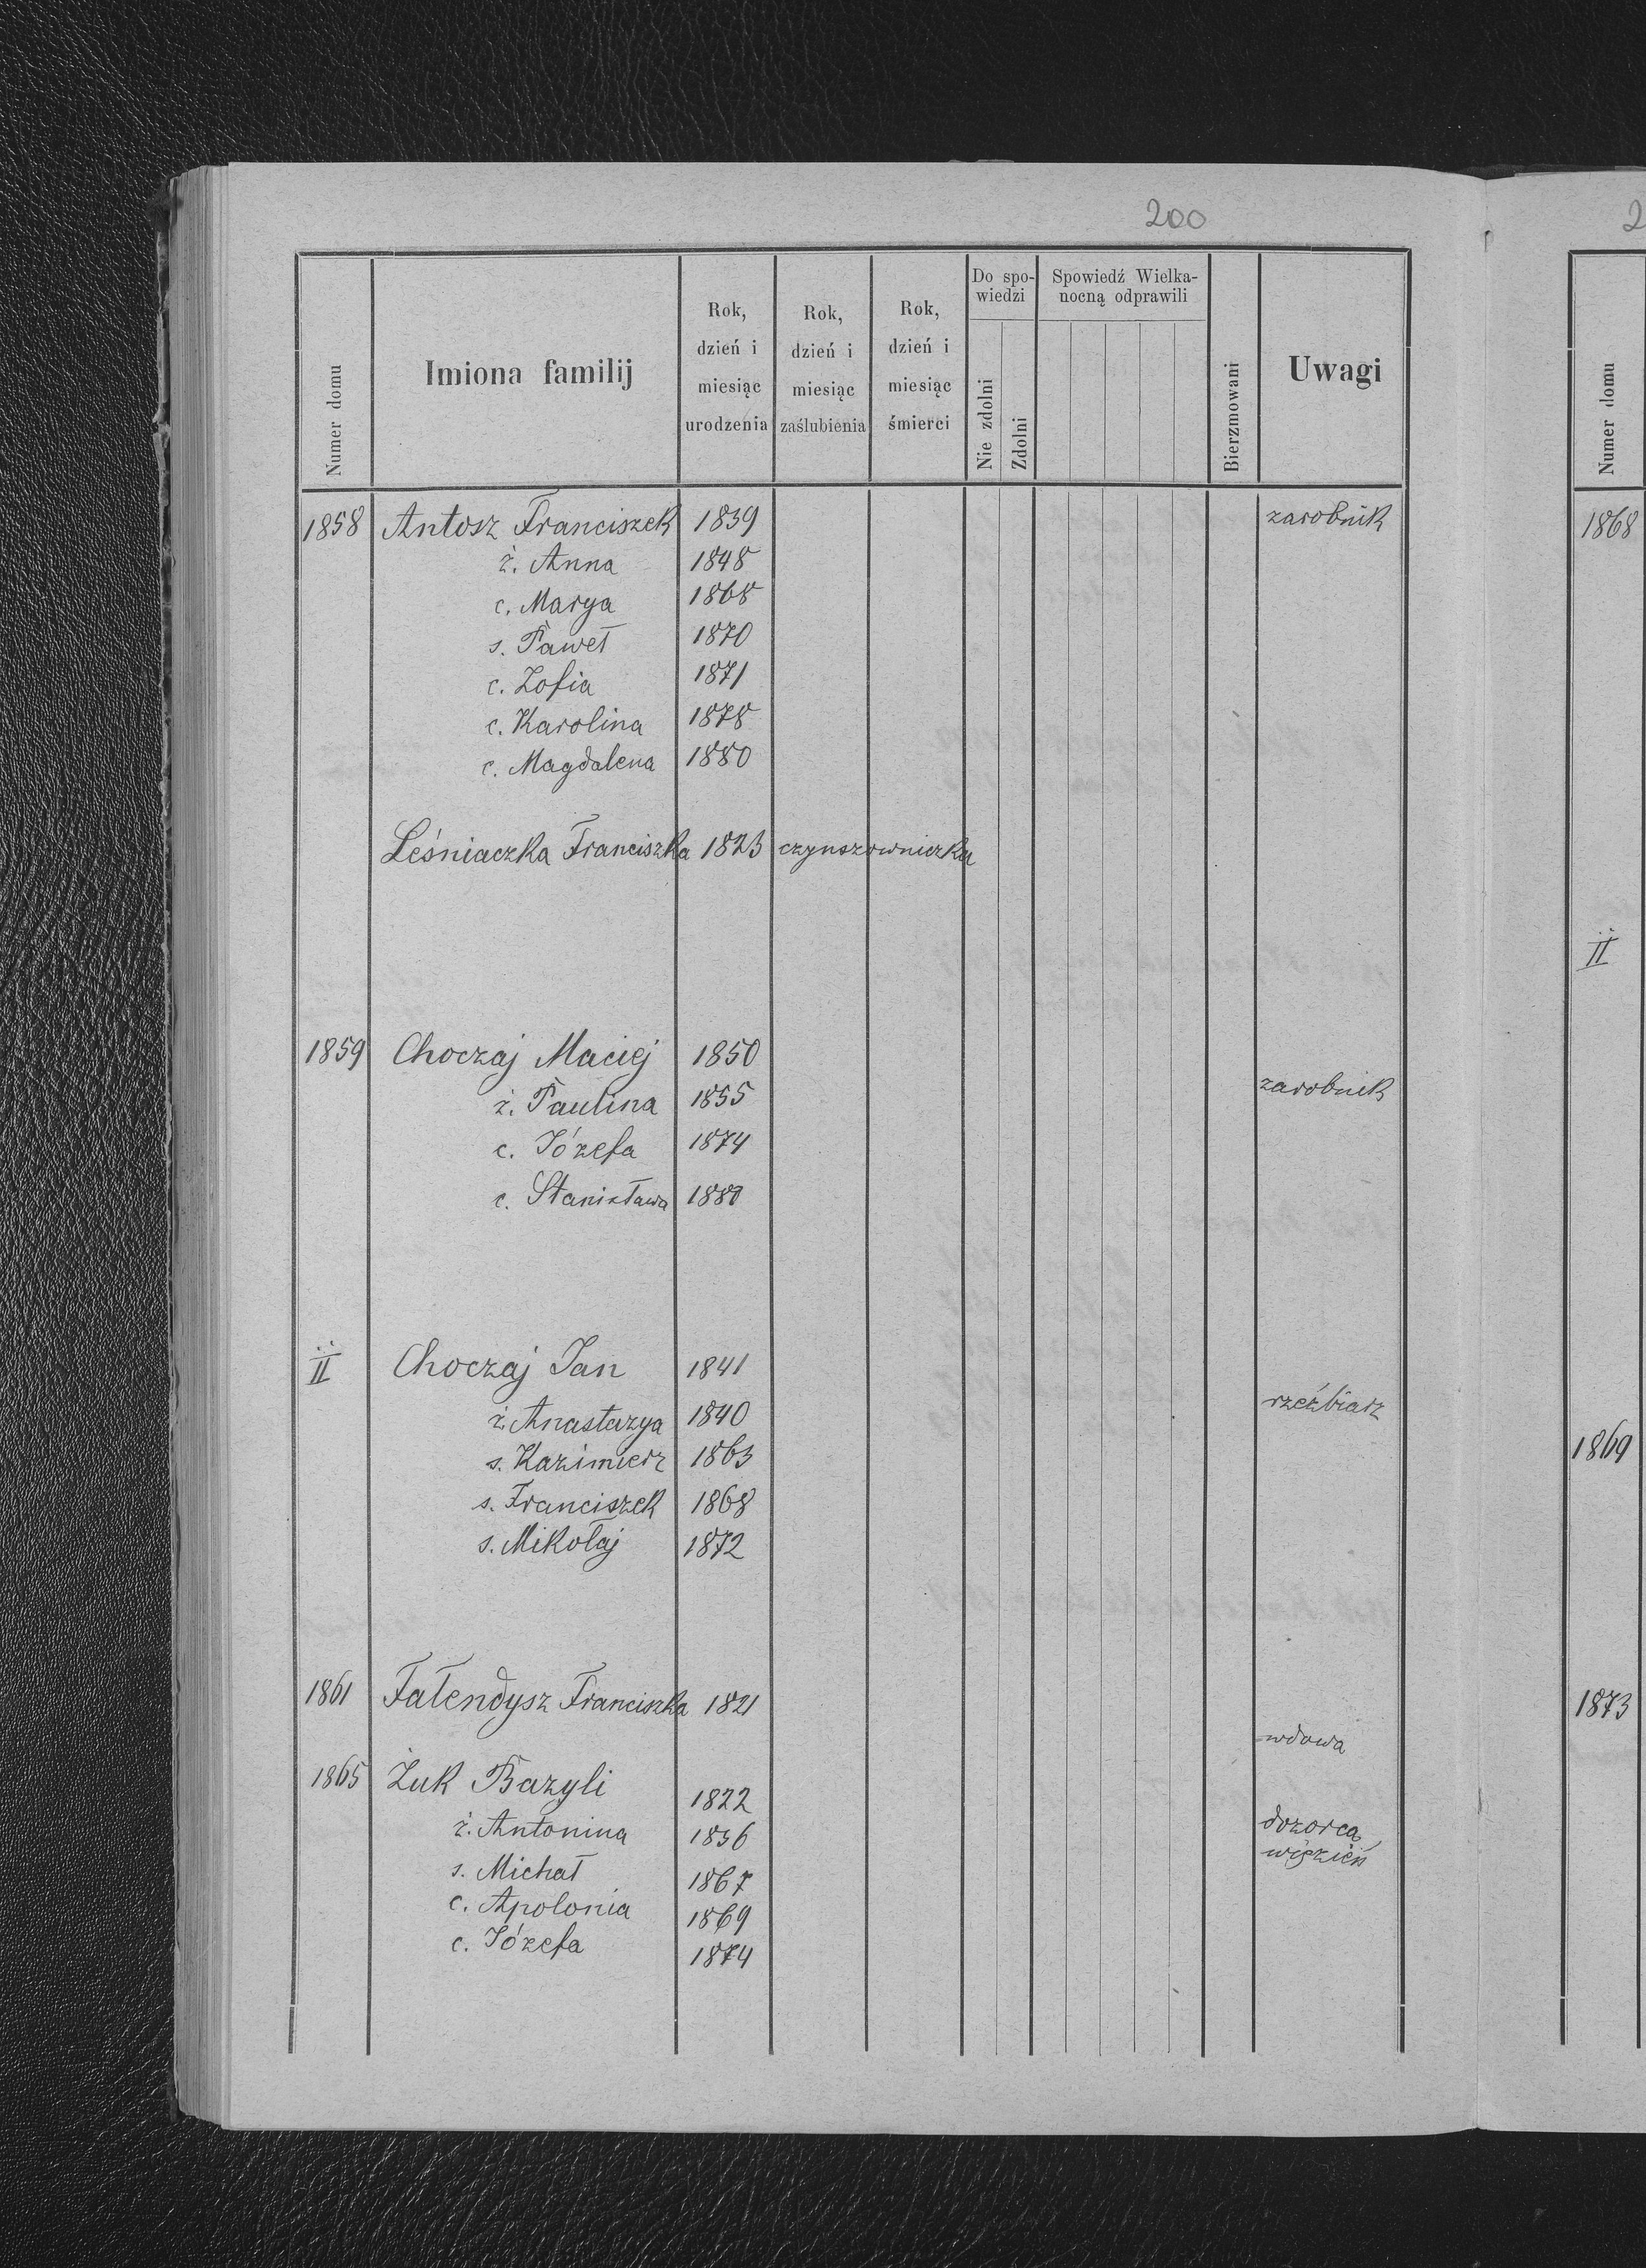 200
Numer domu | Imiona familij | Rok, dzień i miesiąc urodzenia | Rok, dzień i miesiąc zaślubienia | Rok, dzień i miesiąc śmierci | Do spo-wiedzi | Nie zdolni | Zdolni | Spowiedź Wielka-nocną odprawili | Bierzmowani | Uwagi
1858 Antosz Franciszek 1839 zarobnik
ż. Anna 1848
c. Marya 1868
s. Paweł 1870
c. Zofia 1871
c. Karolina 1878
c. Magdalena 1880
Leśniaczka Franciszka 1823 czynszowniczka
1859 Choczaj Maciej 1850
ż. Paulina 1855 zarobnik
c. Józefa 1874
c. Stanisława
II Choczaj Jan 1841
ż. Anastazya 1840 rzeźbiarz
s. Kazimierz 1863
s. Franciszek 1868
s. Mikołaj 1872
1861 Fałendysz Franciszka 1821
wdowa
1865 Żuk Bazyli 1822
ż. Antonina 1836 dozorca
s. Michał 1867 więzień
c. Apolonia 1869
c. Józefa 1874
2
Numer domu
1868
II
1869
1873